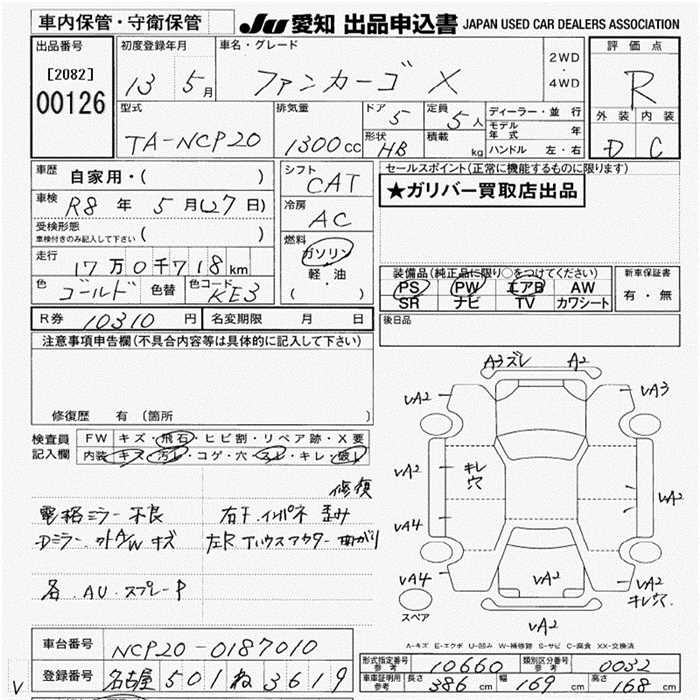 車内保管・守衛保管 JU 愛知 出品申込書 JAPAN USED CAR DEALERS ASSOCIATION
出品番号 初度登録年月 車名・グレード 評価点
[2082] 13 5月 ファンカーゴ X 2WD・4WD R
00126
型式 排気量 ドア 5 定員 5人 ディーラー・並行 外装 内装
TA-NCP20 1300cc 形状 HB 積載 kg モデル年式 年 D C
ハンドル 左・右
車歴 自家用・( ) シフト CAT セールスポイント(正常に機能するものに限ります)
車検 R8年 5月(27日) 冷房 AC ★ガリバー買取店出品
受検形態 車検付きのみ記入して下さい ( )
走行 17万0千718km 燃料 ガソリン 軽・油 ( )
装備品(純正品に限り○をつけてください) 新車保証書
色 ゴールド 色替 色コード KE3 PS PW エアB AW 有・無
SR ナビ TV カワシート
R券 10310円 名変期限 月 日 後日品
注意事項申告欄(不具合内容等は具体的に記入して下さい)
A3ズレ A2
vA2 vA3
修復歴 有 (箇所
検査員記入欄 FW キズ・飛石・ヒビ割・リペア跡・X要
内装 キズ・汚レ・コゲ・穴・スレ・キレ・破レ
vA2 キレ穴 vA2
修復
電格ミラー不良 右F.インパネ歪み
vA4
Dミラー. カドA/W キズ 左R Tハウスアウター曲がり
vA4 vA2 vA2 キレ穴
各.AU.スプレーP
スペア
A-キズ E-エクボ U-凹み W-補修跡 S-サビ C-腐食 XX-交換済
車台番号 NCP20-0187010
型式指定番号 参考 10660 類別区分番号 参考 0032
登録番号 名古屋 501 ね 3619
車庫証明用 参考 長さ 386cm 幅 169cm 高さ 168cm
V